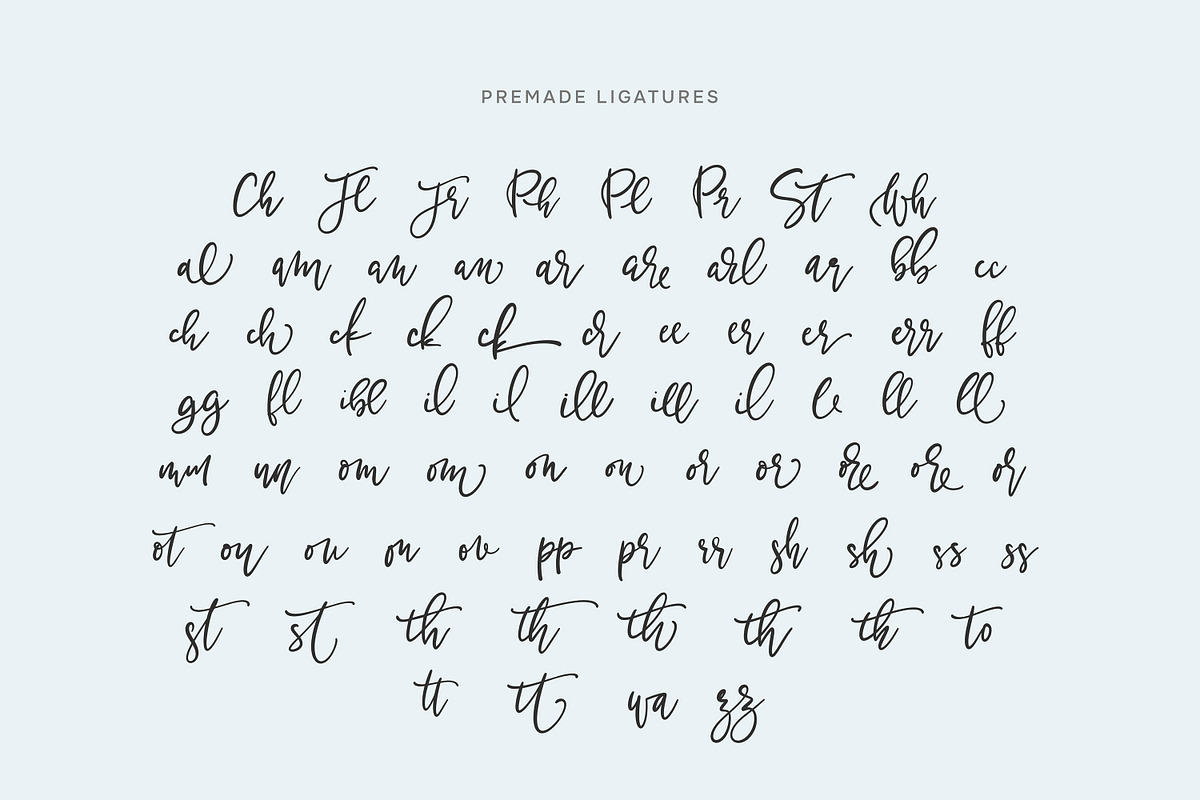 PREMADE LIGATURES
Ch Fl Fr Ph Pl Pr St Wh
al am an an ar are arl ar bb cc
ch ch ck ck ck cr ee er er err ff
gg fl ibl il il ill ill il le ll ll
mm nn om om on on or or ore ore or
ot oy ou on ov pp pr rr sh sh ss ss
st st th th th th th to
tt tt wa zz